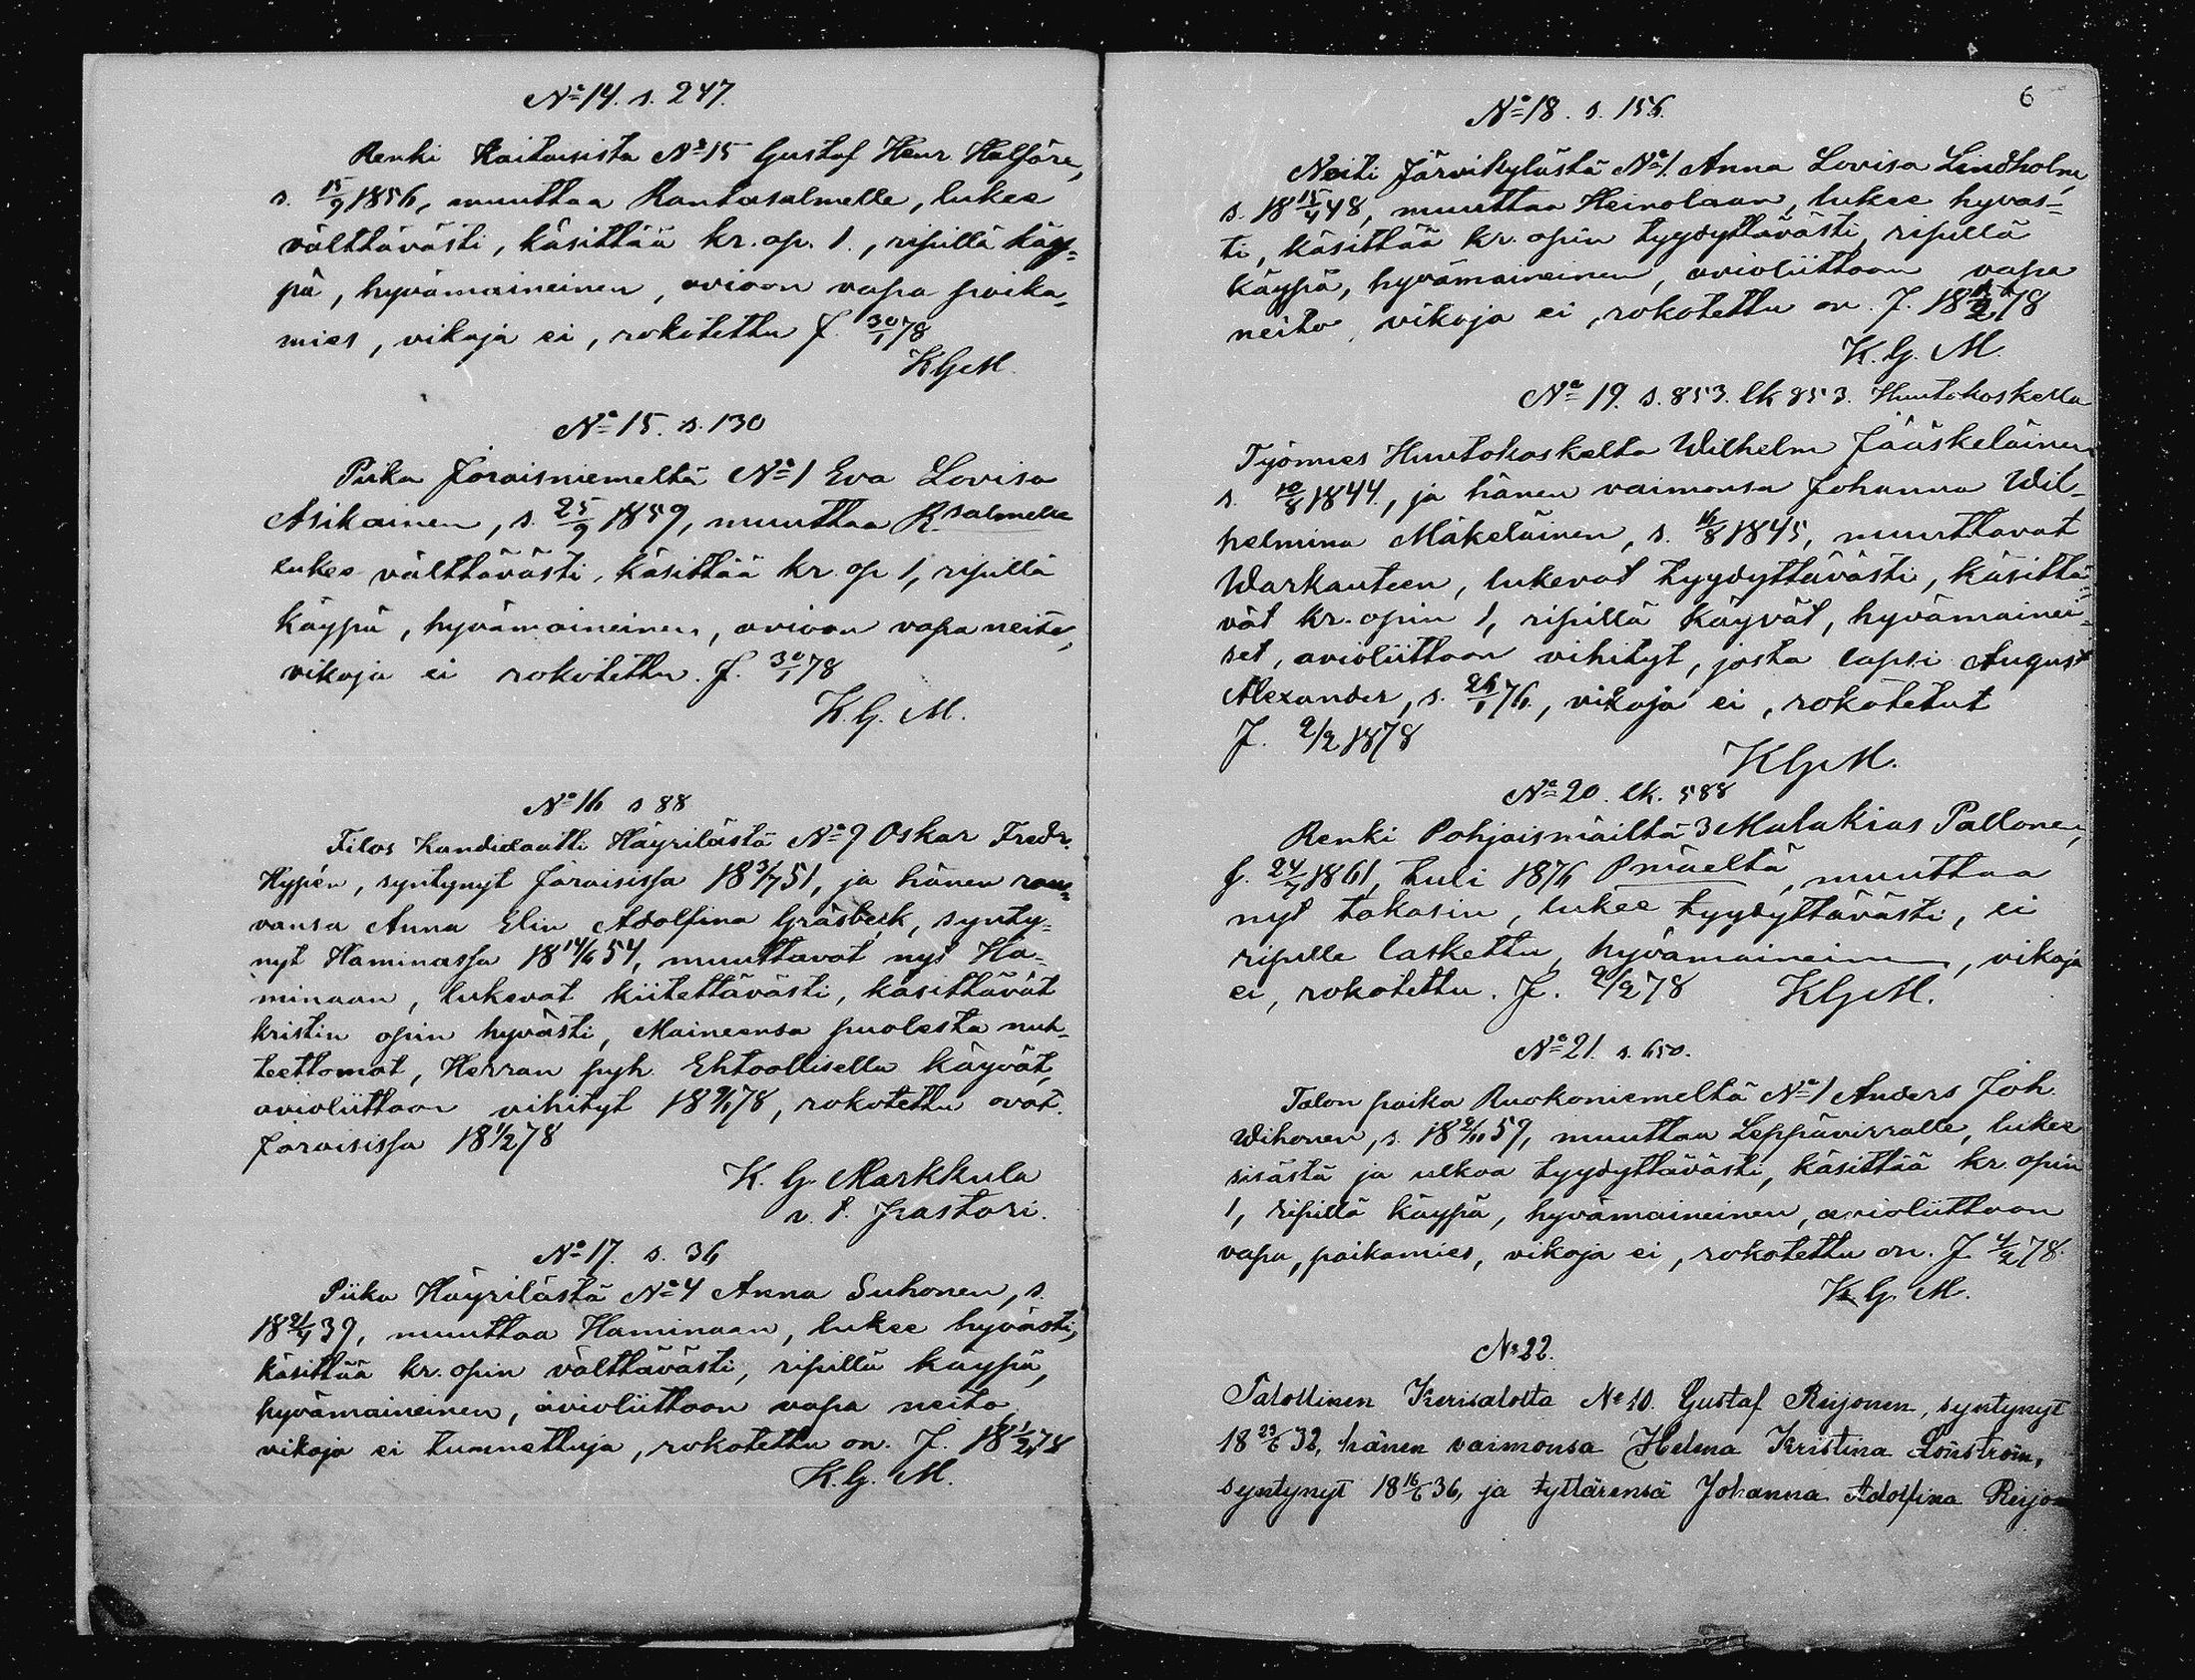 No 14. s. 247.
Renki Kaitaisista No 15 Gustaf Henr Halfäre,
s. 15/9 1856, muuttaa Rantasalmelle, lukee
välttävästi, käsittää kr. op. 1., ripillä käy=
pä, hyvämaineinen, avioon vapa poika=
mies, vikoja ei, rokotettu J. 30/1 78
KGM.
No 15. s. 130
Piika Joroisniemeltä No 1 Eva Lovisa
Asikainen, s. 25/9 1859, muuttaa R.salmelle
lukee välttävästi, käsittää kr. op 1, ripillä
käypä, hyvämaineinen, avioon vapa neito,
vikoja ei rokotettu. J. 30/1 78
K. G. M.
No 16 s 88
Filos Kandidaatti Häyrilästä No 9 Oskar Fredr.
Hypén, syntynyt Joroisissa 18 31/7 51, ja hänen rou=
vansa Anna Elin Adolfina Gräsbeck, synty=
nyt Haminassa 18 14/6 54, muuttavat nyt Ha=
minaan, lukevat kiitettävästi, käsittävät
kristin opin hyvästi, Maineensa puolesta nuh=
teettomat, Herran pyh. Ehtoollisella käyvät,
avioliittoon vihityt 18 9/1 78, rokotettu ovat.
Joroisissa 18 1/2 78
K. G. Markkula
v. t. pastori.
No 17. s. 36
Piika Häyrilästä No 4 Anna Suhonen, s.
18 21/4 39, muuttaa Haminaan, lukee hyvästi,
käsittää kr. opin välttävästi, ripillä käypä,
hyvämaineinen, avioliittoon vapa neito
vikoja ei tunnettuja, rokotettu on. J. 18 1/2 78
K. G. M.
6
No 18. s. 156.
Neiti Järvikylästä No 1. Anna Lovisa Lindholm,
s. 18 15/4 48, muuttaa Heinolaan, lukee hyväs=
ti, käsittää kr. opin tyydyttävästi, ripillä
käypä, hyvämaineinen, avioliittoon vapa
neito, vikoja ei, rokotettu on. J. 18 /2 78
K. G. M.
No 19. s. 853. lk 853. Huutokoskella
Työmies Huutokoskelta Wilhelm Jääskeläinen
s. 10/8 1844., ja hänen vaimonsa Johanna Wil=
helmina Mäkeläinen, s. 16/8 1845, muuttavat
Warkauteen, lukevat tyydyttävästi, käsittä=
vät kr. opin 1, ripillä käyvät, hyvämainei=
set, avioliittoon vihityt, josta lapsi August
Alexander, s. 26/1 76., vikoja ei, rokotetut
J. 2/2 1878
KGM.
No 20. lk. 588
Renki Pohjaismäiltä 3 Malakias Pallonen,
s. 24/7 1861, tuli 1876 P mäeltä, muuttaa
nyt takasin, lukee tyydyttävästi, ei
ripille laskettu, hyvämaineinen, vikoja
ei, rokotettu. J. 2/2 78 KGM.
No 21. s. 650.
Talon poika Ruokoniemeltä No 1 Anders Joh.
Wihonen, s. 18 2/11 59, muuttaa Leppävirralle, lukee
sisästä ja ulkoa tyydyttävästi, käsittää kr. opin
1, ripillä käypä, hyvämaineinen, avioliittoon
vapa, poikamies, vikoja ei, rokotettu on. J. 4/2 78.
K. G. M.
No 22.
Talollinen Kerisalosta No 10. Gustaf Reijonen, syntynyt
18 23/6 32, hänen vaimonsa Helena Kristina Lönström,
syntynyt 18 16/6 36, ja tyttärensä Johanna Adolfina Reijo